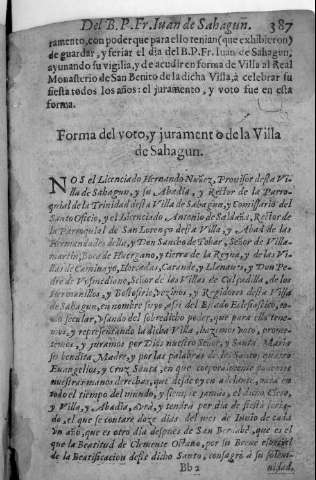 Del B.P.Fr. Iuan de Sahagun. 387
ramento, con poder que para ello tenian (que exhibieron)
de guardar, y feriar el dia del B.P.Fr. Iuan de Sahagun,
ayunando su vigilia, y de acudir en forma de Villa al Real
Monasterio de San Benito de la dicha Villa, à celebrar su
fiesta todos los años: el juramento, y voto fue en esta
forma.
Forma del voto, y juramento de la Villa
de Sahagun.
NOS el Licenciado Hernando Nuñez, Prouisor desta Vi-
lla de Sahagun, y su Abadia, y Retor de la Parro-
quial de la Trinidad desta Villa de Sahagun, y Comissario del
Santo Oficio, y el Licenciado Antonio de Saldaña, Retor de
la Parroquial de San Lorenço desta Villa, y Abad de las
Hermandades della, y Don Sancho de Tobar, Señor de Villa-
martin, Boca de Huergano, y tierra de la Reyna, y de las Vi-
llas de Caminayo, Horcadas, Carande, y Llanaues, y Don Pe-
dro de Vosmediano, Señor de las Villas de Galpadilla, de los
Vermanillos, y vezinos, y Regidores desta Villa
de Sahagun, en nombre suyo, assi del Estado Eclesiastico, co-
mo secular, vsando del sobredicho poder, que para ello tene-
mos, y representando la dicha Villa, hazemos voto, prome-
temos, y juramos por Dios nuestro Señor, y Santa Maria
su bendita Madre, y por las palabras de los Santos quatro
Euangelios, y Cruz Santa, en que corporalmente ponemos
nuestras manos derechas, que desde oy en adelante, para en
todo el tiempo del mundo, y siempre jamàs, el dicho Clero,
y Villa, y Abadia, aurà, y tendrà por dia de fiesta
do, el que se contare doze dias del mes de Iunio de cada
vn año, que es otro dia despues de San Bernabè, que es el
que la Beatitud de Clemente Octauo, por su Breue especial
de la Beatificacion deste dicho Santo, consagrò à su solem-
Bb 2 nidad,